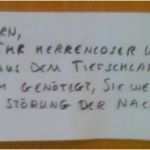 EN,
IHR HERRENLOSER W
AUS DEM TIEFSCHLA
M GENÖTIGT, SIE WE
STÖRUNG DER NAC